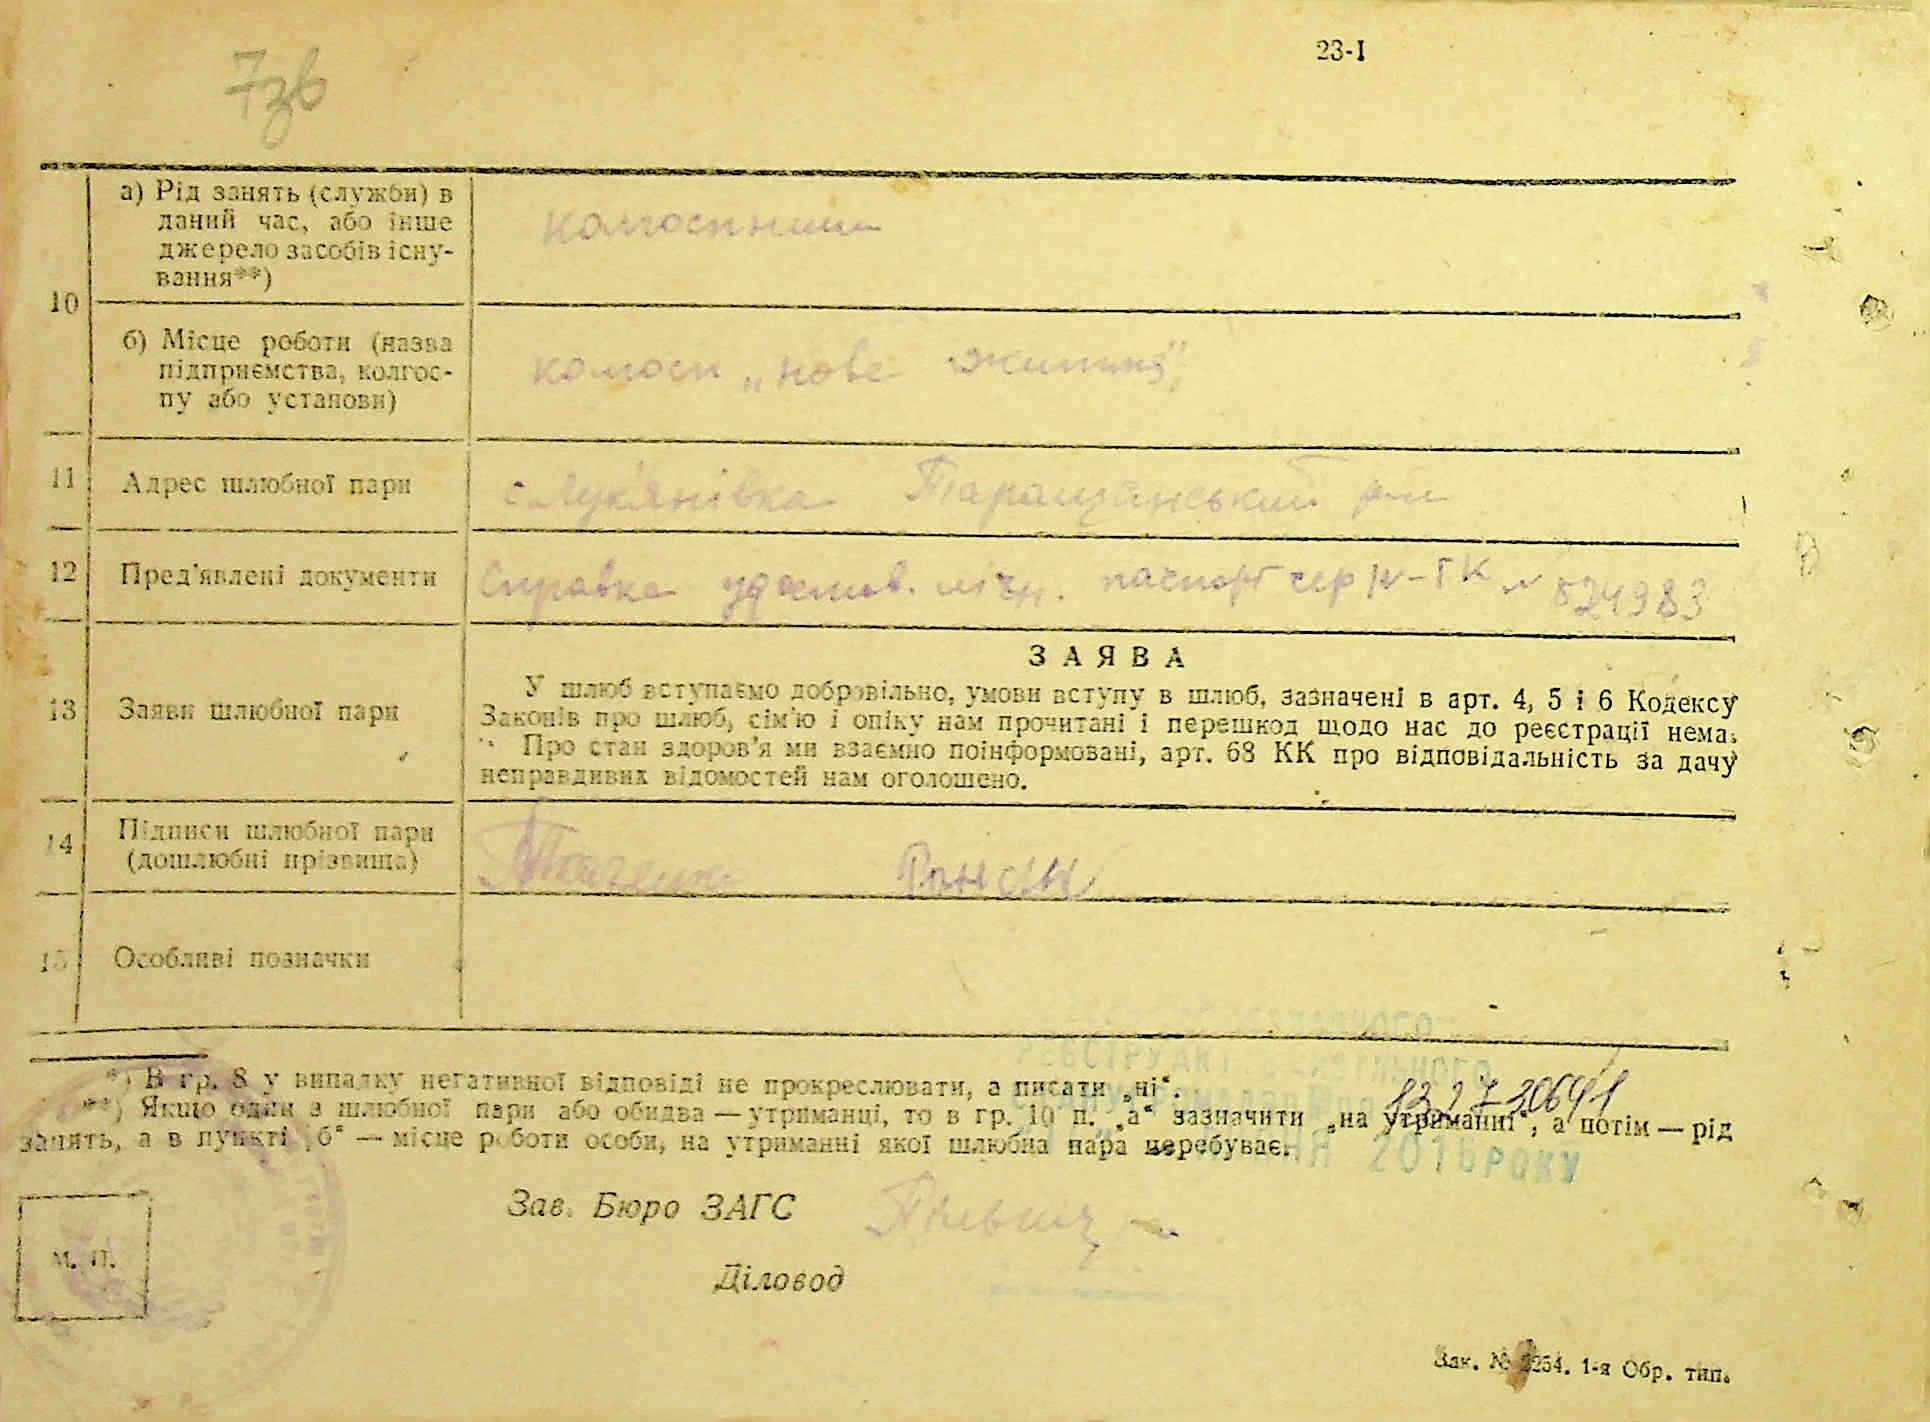 23-I
7зв
10
а) Рід занять (служби) в
даний час, або інше
джерело засобів існу-
вання**)
колгоспники
б) Місце роботи (назва
підприємства, колгос-
пу або установи)
колгосп „нове життя"
11
Адрес шлюбної пари
с Лук'янівка Таращанський р-н
12
Пред'явлені документи
Справка удостов. лічн. паспорт сер ІV-ГК № 824983
13
Заяви шлюбної пари
ЗАЯВА
У шлюб вступаємо добровільно, умови вступу в шлюб, зазначені в арт. 4, 5 і 6 Кодексу
Законів про шлюб, сім'ю і опіку нам прочитані і перешкод щодо нас до реєстрації нема.
Про стан здоров'я ми взаємно поінформовані, арт. 68 КК про відповідальність за дачу
неправдивих відомостей нам оголошено.
14
Підписи шлюбної пари
(дошлюбні прізвища)
Ткаченко
15
Особливі позначки
*) В гр. 8 у випадку негативної відповіді не прокреслювати, а писати „ні".
**) Якщо один з шлюбної пари або обидва — утриманці, то в гр. 10 п. „а" зазначити „на утриманні", а потім — рід
занять, а в пункті „б" — місце роботи особи, на утриманні якої шлюбна пара перебуває.
2016 РОКУ
Зав. Бюро ЗАГС
М. П.
Діловод
Зак. № 254. 1-я Обр. тип.